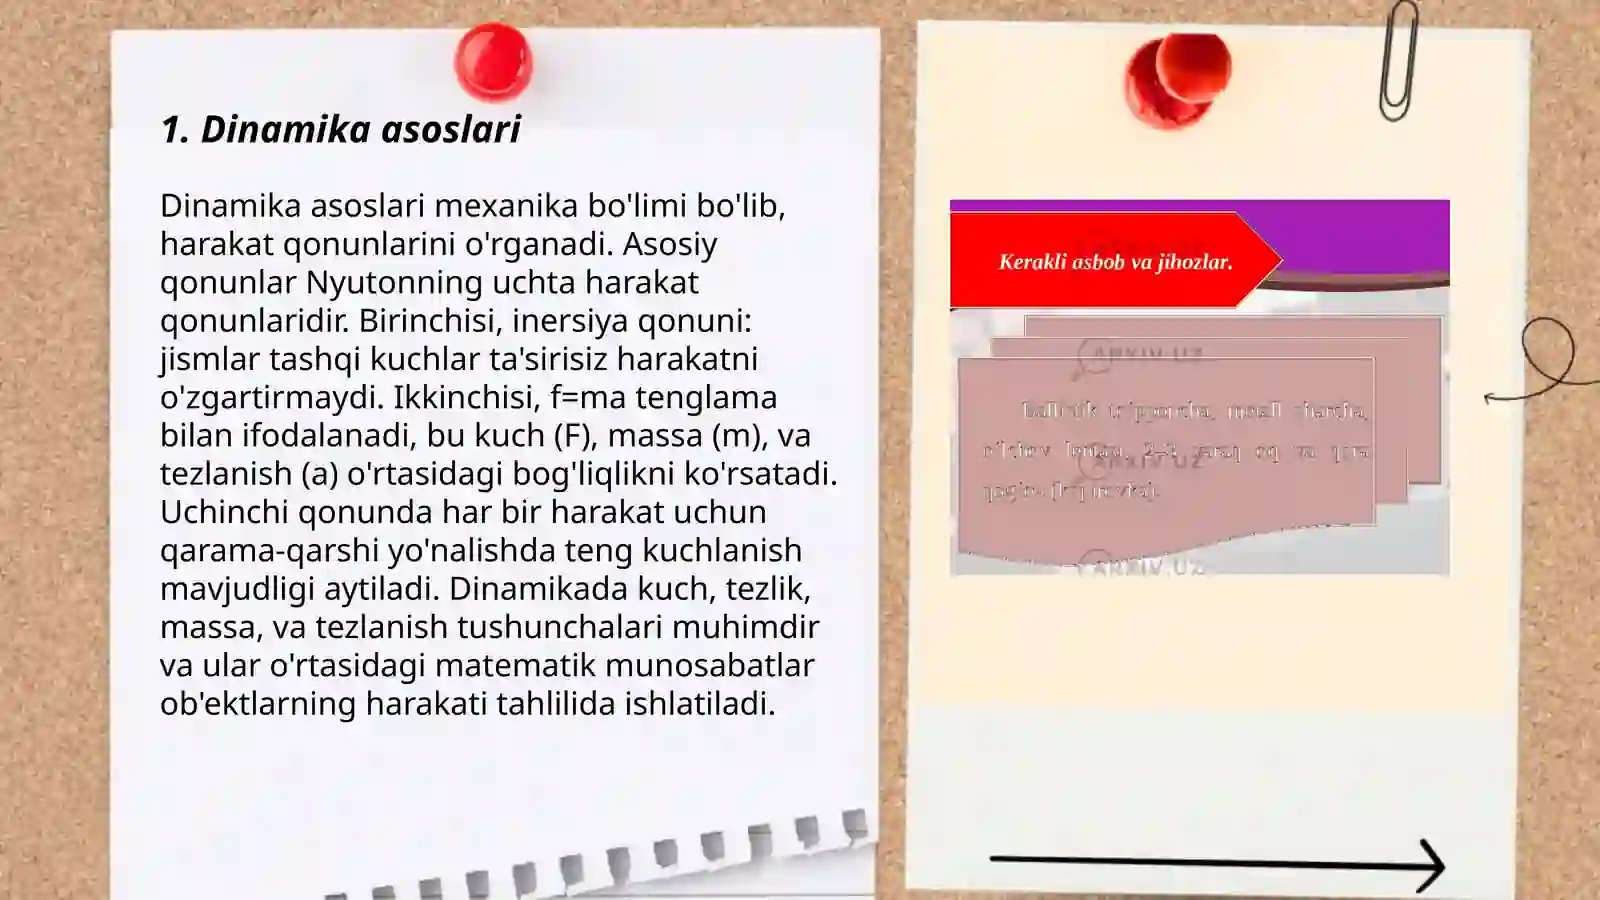 1. Dinamika asoslari
Dinamika asoslari mexanika bo'limi bo'lib,
harakat qonunlarini o'rganadi. Asosiy
qonunlar Nyutonning uchta harakat
qonunlaridir. Birinchisi, inersiya qonuni:
jismlar tashqi kuchlar ta'sirisiz harakatni
o'zgartirmaydi. Ikkinchisi, f=ma tenglama
bilan ifodalanadi, bu kuch (F), massa (m), va
tezlanish (a) o'rtasidagi bog'liqlikni ko'rsatadi.
Uchinchi qonunda har bir harakat uchun
qarama-qarshi yo'nalishda teng kuchlanish
mavjudligi aytiladi. Dinamikada kuch, tezlik,
massa, va tezlanish tushunchalari muhimdir
va ular o'rtasidagi matematik munosabatlar
ob'ektlarning harakati tahlilida ishlatiladi.
Kerakli asbob va jihozlar.
ARXIV.UZ
metall sharcha,
ARXIV.UZ
ARXIV.UZ